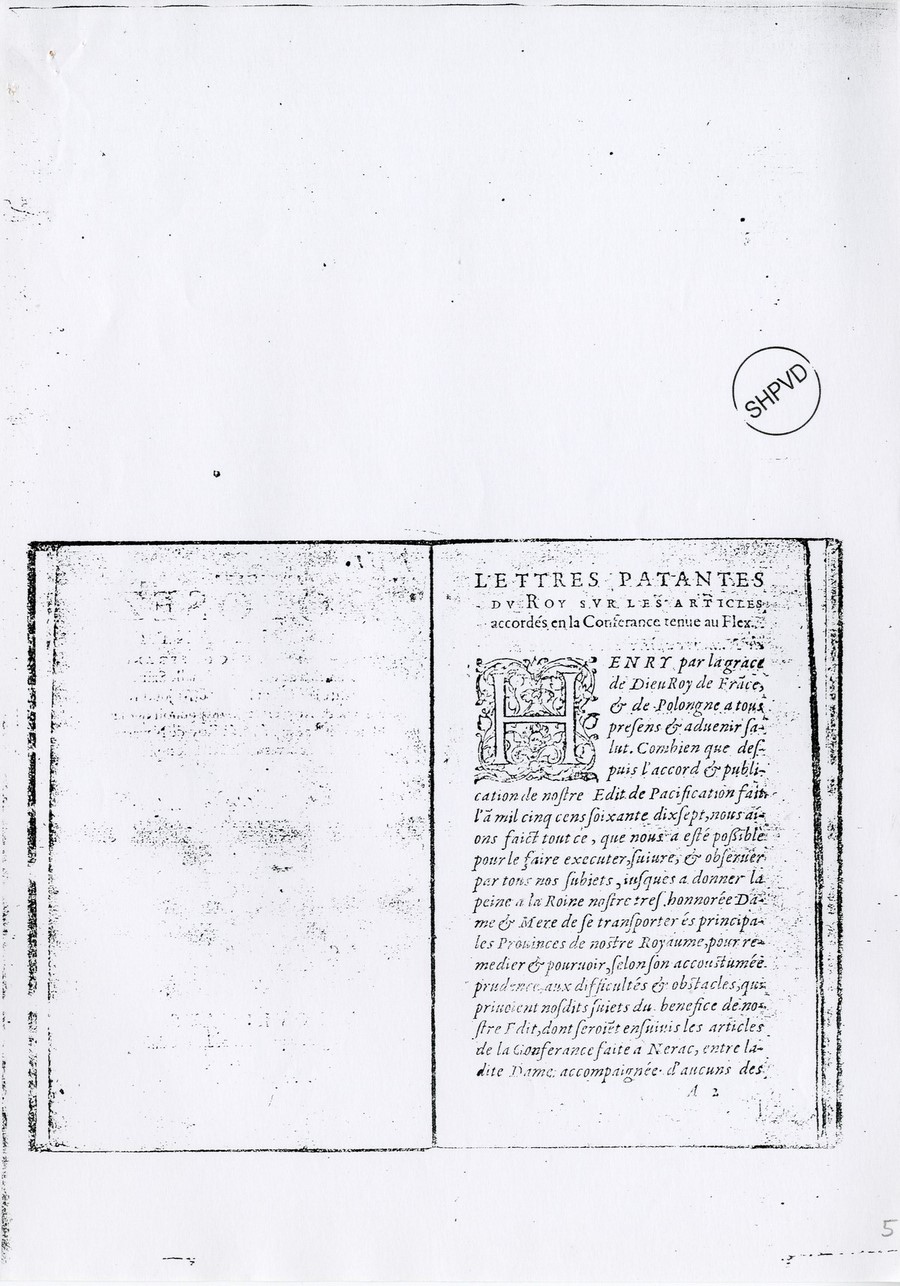 SHPVD
LETTRES PATANTES
DV ROY SVR LES ARTICLES
accordés en la Conferance tenue au Flex.
HENRY par la grace
de Dieu Roy de Frãce,
& de Polongne a tous
presens & aduenir sa-
lut. Combien que des-
puis l'accord & publi-
cation de nostre Edit de Pacification fait
l'ã mil cinq cens soixante dixsept, nous ai-
ons faict tout ce, que nous a esté possible
pour le faire executer, suiure, & obseruer
par tous nos subiets, iusques a donner la
peine a la Roine nostre tres honnorée Da-
me & Mere de se transporter és principa-
les Prouinces de nostre Royaume, pour re-
medier & pouruoir, selon son accoustumée
prudence aux difficultés & obstacles, qui
priuoient nosdits suiets du benefice de no-
stre Edit, dont seroiẽt ensuiuis les articles
de la Conferance faite a Nerac, entre la-
dite Dame accompaignée d'aucuns des
A 2
5